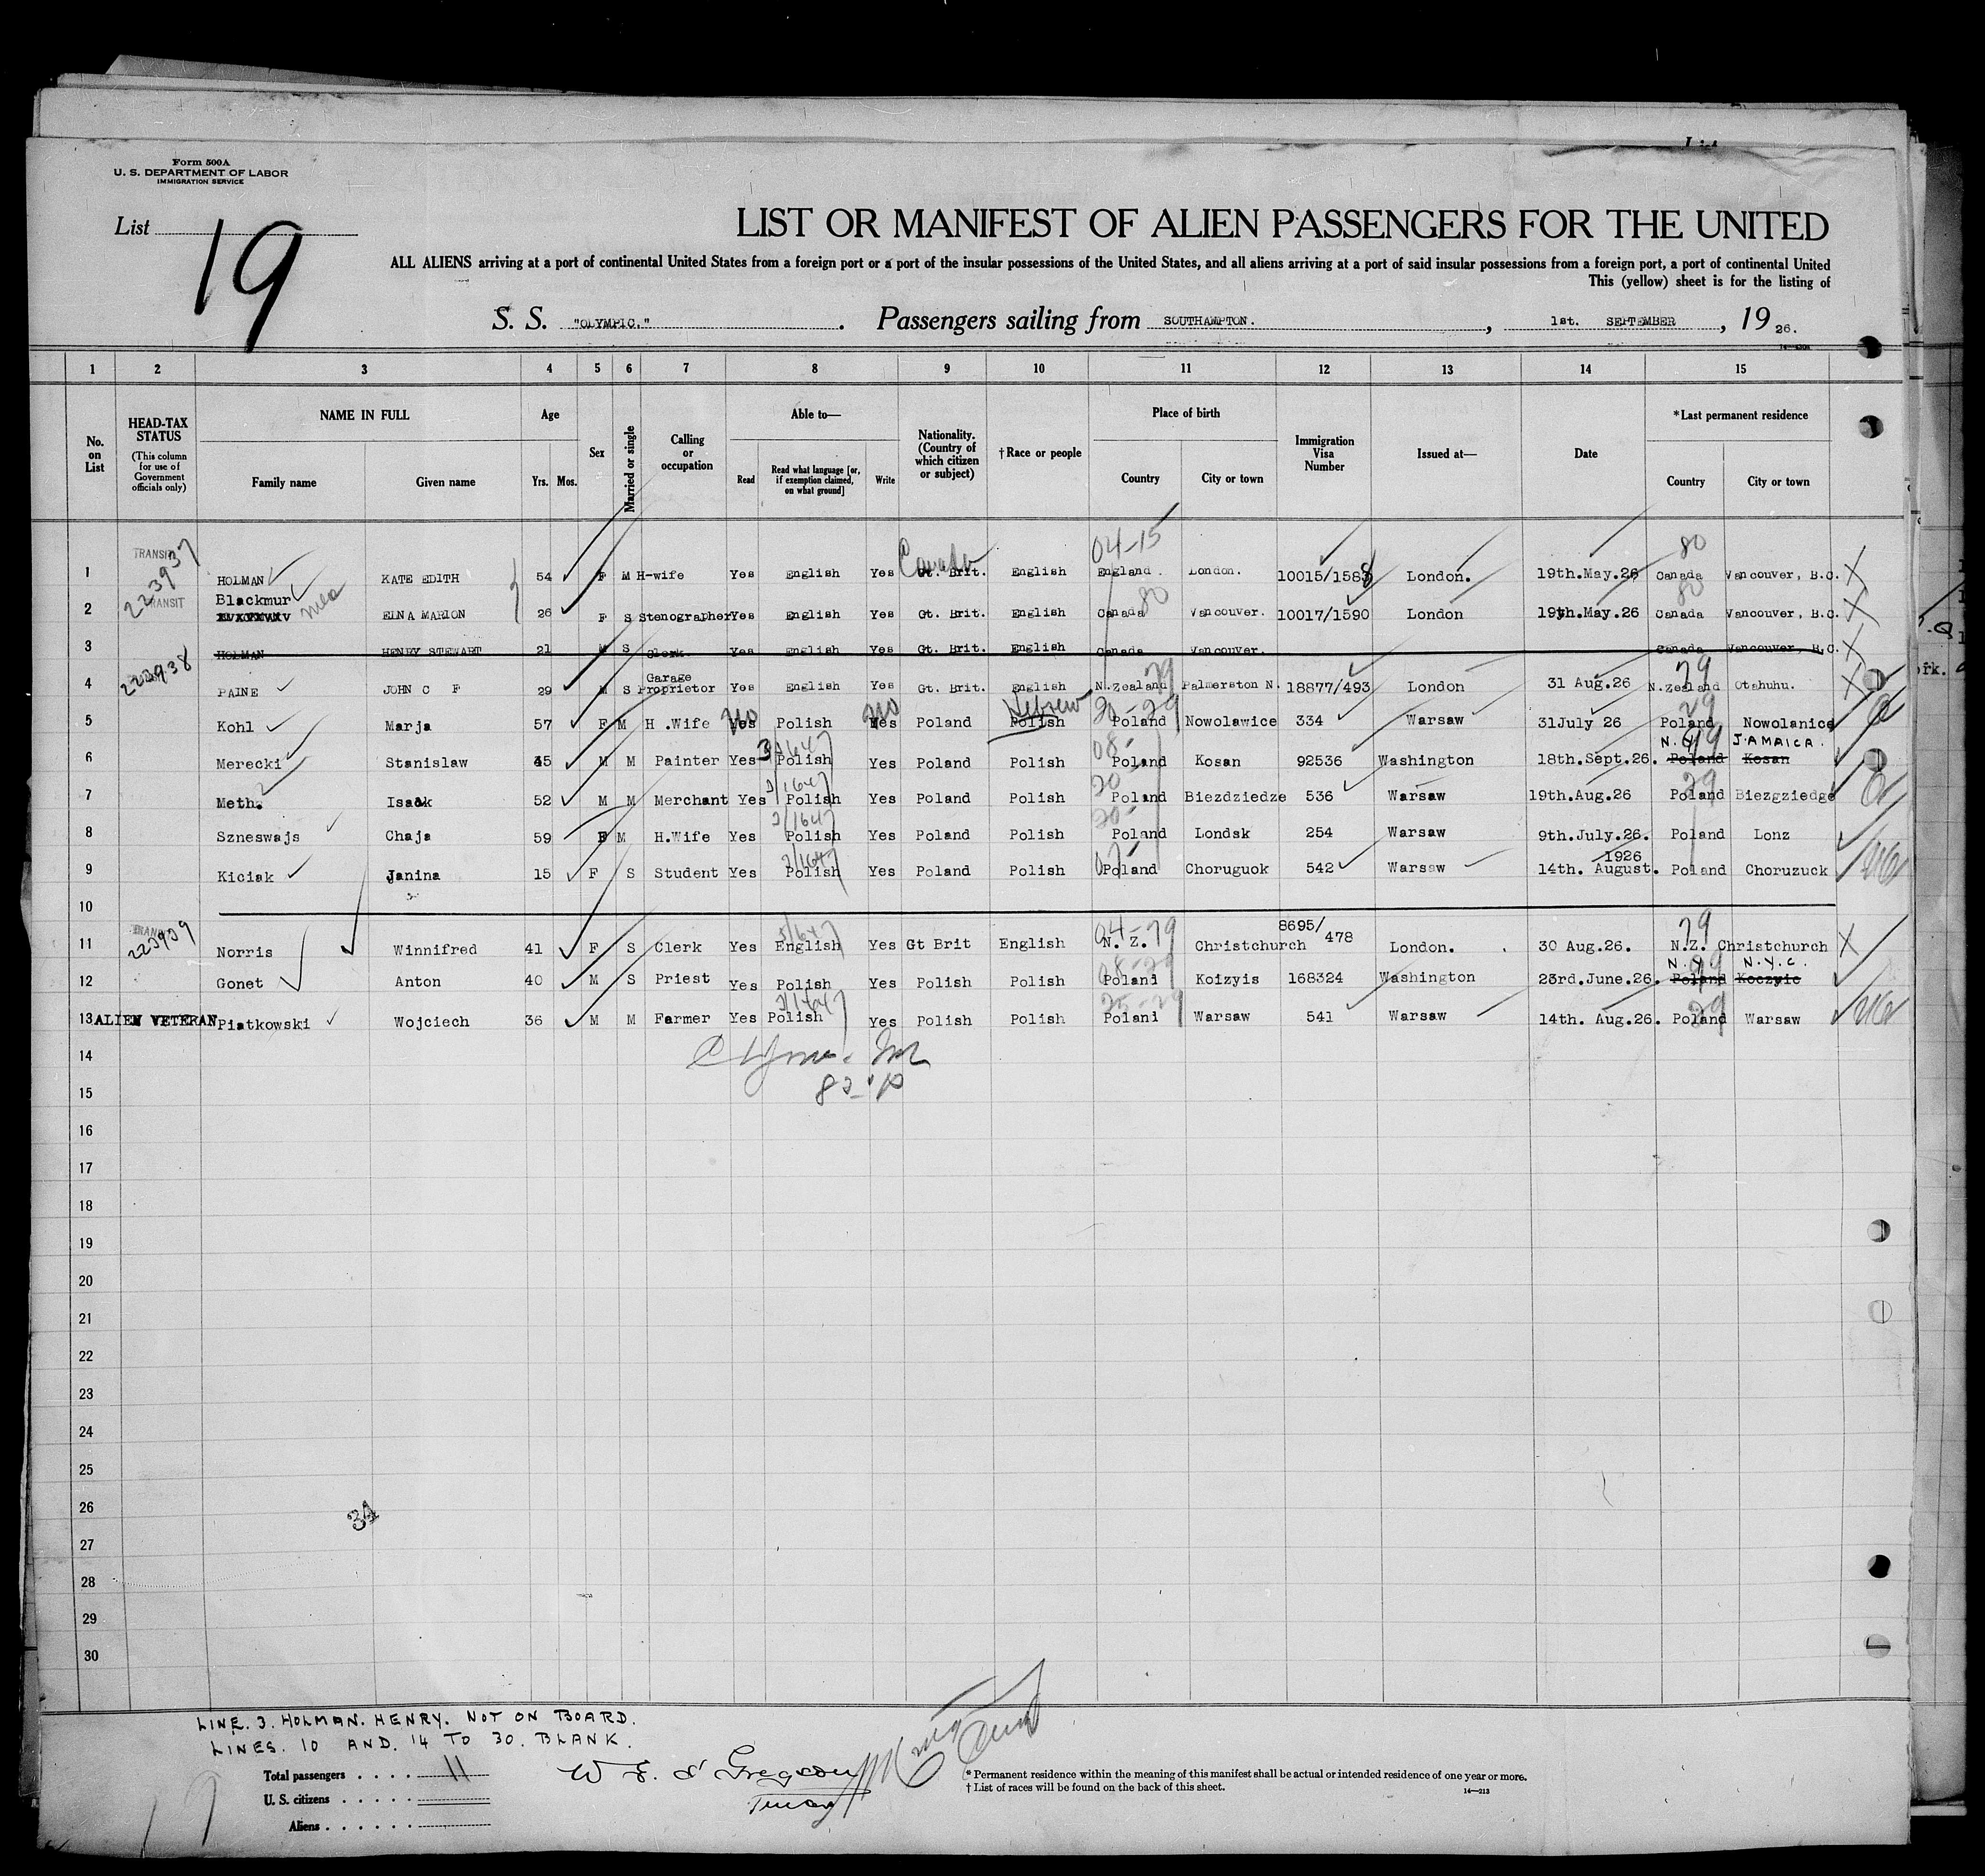 Form 500A
U. S. DEPARTMENT OF LABOR
IMMIGRATION SERVICE
List 19
LIST OR MANIFEST OF ALIEN PASSENGERS FOR THE UNITED
ALL ALIENS arriving at a port of continental United States from a foreign port or a port of the insular possessions of the United States, and all aliens arriving at a port of said insular possessions from a foreign port, a port of continental United
This (yellow) sheet is for the listing of
S. S. "OLYMPIC." Passengers sailing from SOUTHAMPTON. , 1st. SEPTEMBER , 19 26.
1 2 3 4 5 6 7 8 9 10 11 12 13 14 15
No. on List
HEAD-TAX STATUS (This column for use of Government officials only)
NAME IN FULL Family name Given name
Age Yrs. Mos.
Sex
Married or single
Calling or occupation
Able to— Read Read what language [or, if exemption claimed, on what ground] Write
Nationality. (Country of which citizen or subject)
†Race or people
Place of birth Country City or town
Immigration Visa Number
Issued at—
Date
*Last permanent residence Country City or town
TRANSIT 223937 Canada 04-15 80
1 HOLMAN KATE EDITH 54 F M H-wife Yes English Yes Gt. Brit. English England. London. 10015/1588 London. 19th.May.26 Canada Vancouver, B.C. X
Blackmur
2 TRANSIT ELNA MARION 26 F S Stenographer Yes English Yes Gt. Brit. English Canada 80 Vancouver. 10017/1590 London 19th.May.26 80 Canada Vancouver, B.C. X
3 HOLMAN HENRY STEWART 21 M S Clerk Yes English Yes Gt. Brit. English Canada Vancouver. Canada Vancouver, B.C. X
223938 Garage 79 79
4 PAINE JOHN C F 29 M S Proprietor Yes English Yes Gt. Brit. English N.Zealand Palmerston N. 18877/493 London 31 Aug.26 N.Zealand Otahuhu. X
no no Hebrew
5 Kohl Marja 57 F M H .Wife Yes Polish Yes Poland Polish Poland Nowolawice 334 Warsaw 31July 26 Poland Nowolanice
N.Y. JAMAICA.
6 Merecki Stanislaw 45 M M Painter Yes Polish Yes Poland Polish Poland Kosan 92536 Washington 18th.Sept.26. Poland Kosan
7 Meth. Isaak 52 M M Merchant Yes Polish Yes Poland Polish Poland Biezdziedze 536 Warsaw 19th.Aug.26 Poland Biezgziedge
8 Szneswajs Chaja 59 F M H.Wife Yes Polish Yes Poland Polish Poland Londsk 254 Warsaw 9th.July.26. Poland Lonz
1926
9 Kiciak Janina 15 F S Student Yes Polish Yes Poland Polish Poland Choruguok 542 Warsaw 14th. August. Poland Choruzuck
10
TRANSIT 223939 8695/ 79
11 Norris Winnifred 41 F S Clerk Yes English Yes Gt Brit English N. Z. Christchurch 478 London. 30 Aug.26. N.Z. Christchurch X
N.Y. N.Y.C.
12 Gonet Anton 40 M S Priest Yes Polish Yes Polish Polish Poland Koizyis 168324 Washington 23rd.June.26. Poland Koczyic
13 ALIEN VETERAN Piatkowski Wojciech 36 M M Farmer Yes Polish Yes Polish Polish Poland Warsaw 541 Warsaw 14th. Aug.26. Poland Warsaw
14
15
16
17
18
19
20
21
22
23
24
25
26
34
27
28
29
30
LINE. 3. HOLMAN. HENRY. NOT ON BOARD.
LINES. 10 AND. 14 TO 30. BLANK.
Total passengers . . . . 11
U. S. citizens . . . . .
Aliens . . . . . .
* Permanent residence within the meaning of this manifest shall be actual or intended residence of one year or more.
† List of races will be found on the back of this sheet.
14—213